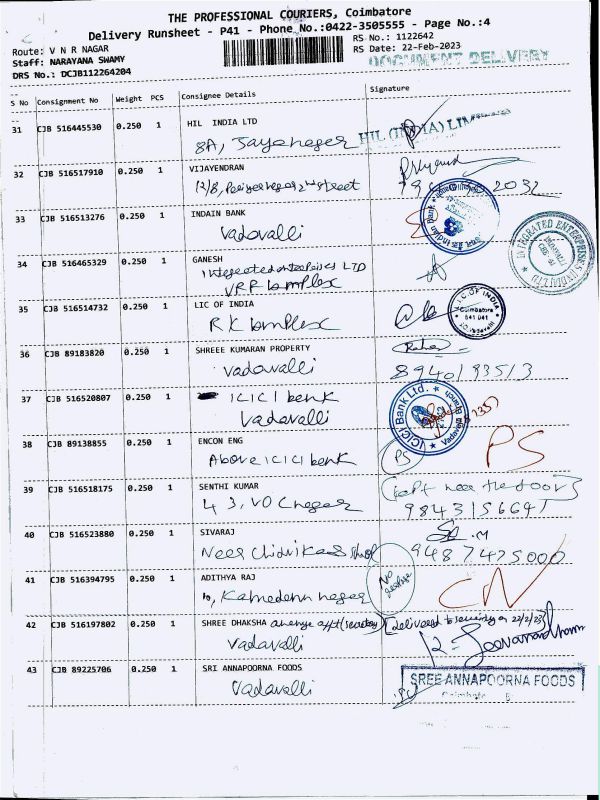 THE PROFESSIONAL COURIERS, Coimbatore
Delivery Runsheet - P41 - Phone No.:0422-3505555 - Page No.:4
Route: V N R NAGAR
RS No.: 1122642
Staff: NARAYANA SWAMY
RS Date: 22-Feb-2023
DRS No.: DCJB112264204
DOCUMENT DELIVERY
S No Consignment No Weight PCS Consignee Details Signature
31 CJB 516445530 0.250 1 HIL INDIA LTD
8A, Jayanagar
HIL (INDIA) LIMITED
32 CJB 516517910 0.250 1 VIJAYENDRAN
2032
33 CJB 516513276 0.250 1 INDAIN BANK
Vadavalli
Indian Bank
34 CJB 516465329 0.250 1 GANESH
Integrated enterprises LTD
VRR Complex
INTEGRATED ENTERPRISES
35 CJB 516514732 0.250 1 LIC OF INDIA
RK Complex
L.I.C. OF INDIA
Coimbatore
641 041
36 CJB 89183820 0.250 1 SHREEE KUMARAN PROPERTY
Vadavalli
8940193513
37 CJB 516520807 0.250 1 ICICI bank
Vadavalli
ICICI Bank Ltd.
38 CJB 89138855 0.250 1 ENCON ENG
Above ICICI bank
PS PS
39 CJB 516518175 0.250 1 SENTHI KUMAR
43, VOC nagar
kept near the door
40 CJB 516523880 0.250 1 SIVARAJ
Near
9487475000
41 CJB 516394795 0.250 1 ADITHYA RAJ
10, Kamadenu nagar
No
CN
42 CJB 516197802 0.250 1 SHREE DHAKSHA
(delivered to security on 22/2/23)
Vadavalli
43 CJB 89225706 0.250 1 SRI ANNAPOORNA FOODS
Vadavalli
SREE ANNAPOORNA FOODS